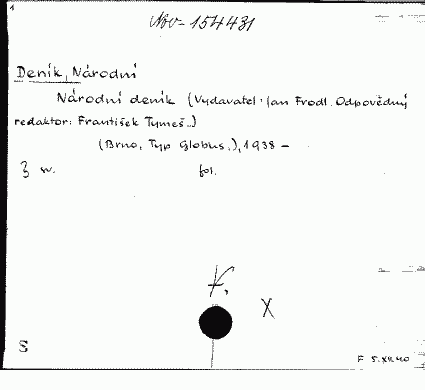 1
Nov-154431
Deník, Národní
Národní deník (Vydavatel: Jan Frodl. Odpovědný
redaktor: František Tymeš..)
(Brno, Typ Globus,), 1938 -
3 sv. fol.
K,
X
S
F 5.XII.40